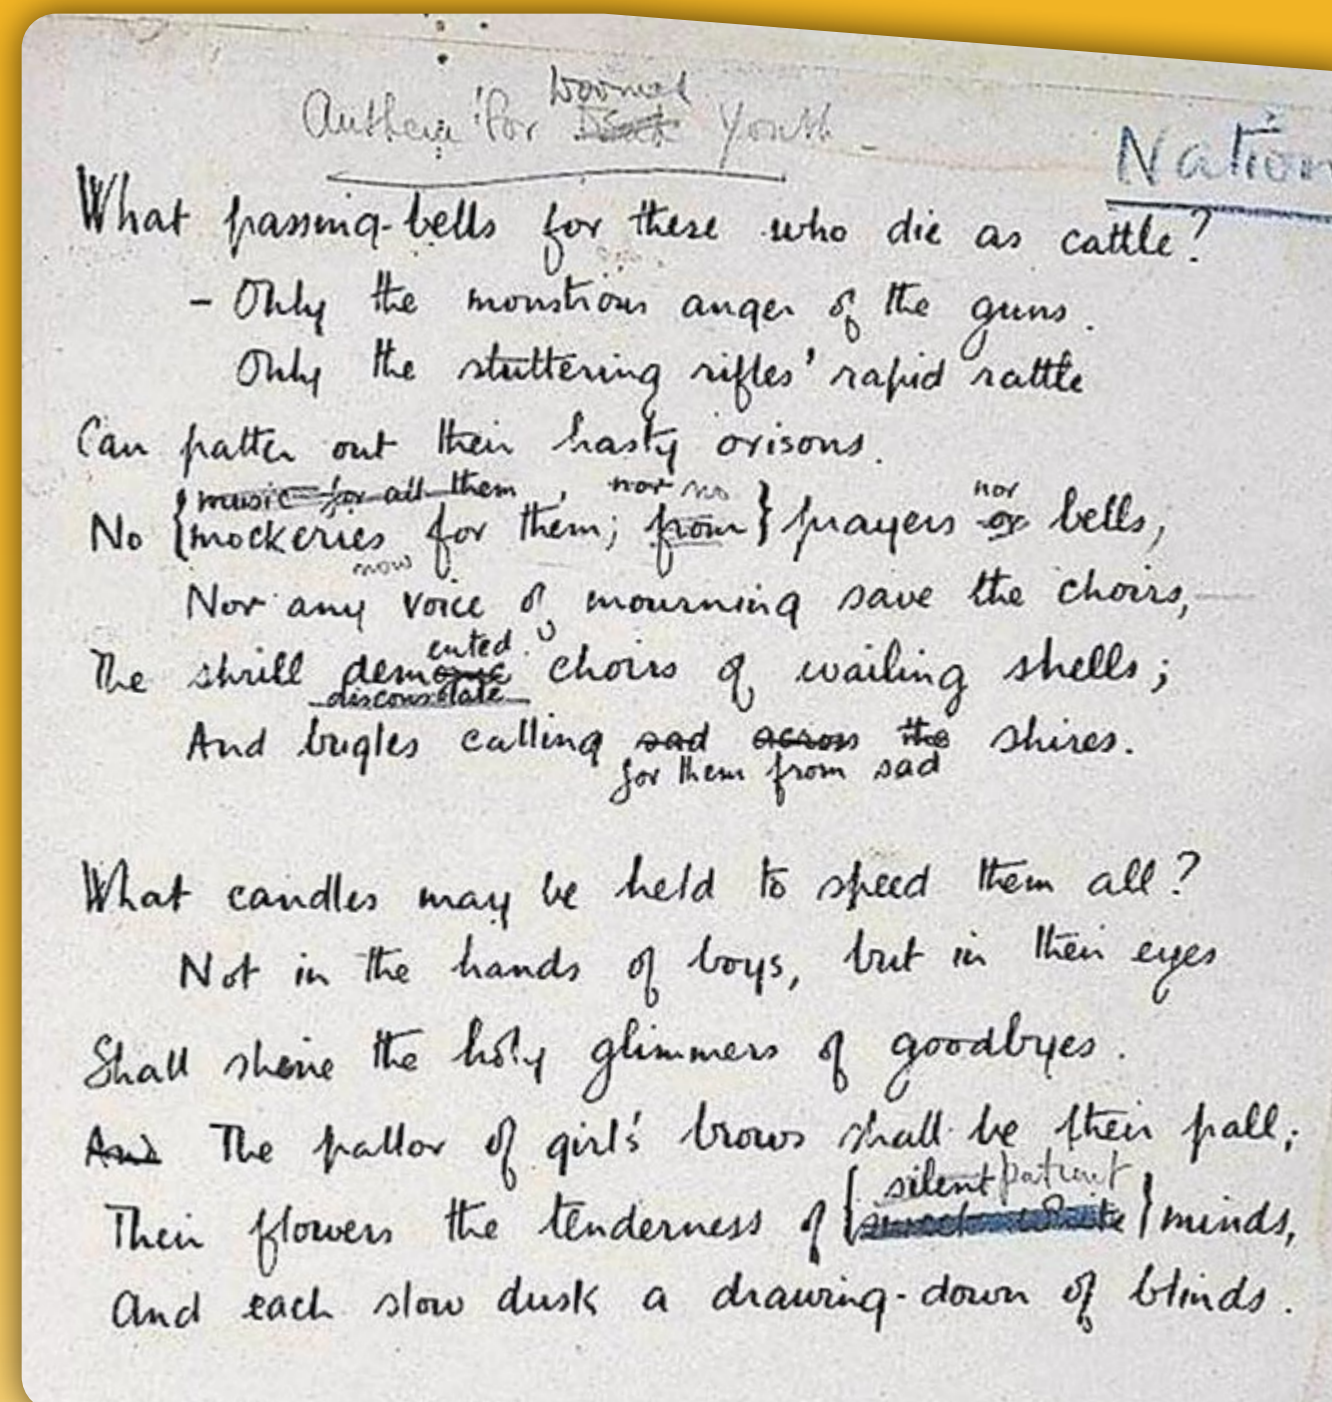 Doomed
Anthem for Dead Youth -
Nation
What passing-bells for these who die as cattle?
- Only the monstrous anger of the guns.
Only the stuttering rifles' rapid rattle
Can patter out their hasty orisons.
music for all them , nor no nor
No { mockeries for them; from } prayers or bells,
now
Nor any voice of mourning save the choirs,
ented
The shrill demonic choirs of wailing shells;
disconsolate
And bugles calling sad across the shires.
for them from sad
What candles may be held to speed them all?
Not in the hands of boys, but in their eyes
Shall shine the holy glimmers of goodbyes.
And The pallor of girl's brows shall be their pall;
silent patient
Their flowers the tenderness of { white } minds,
And each slow dusk a drawing-down of blinds.